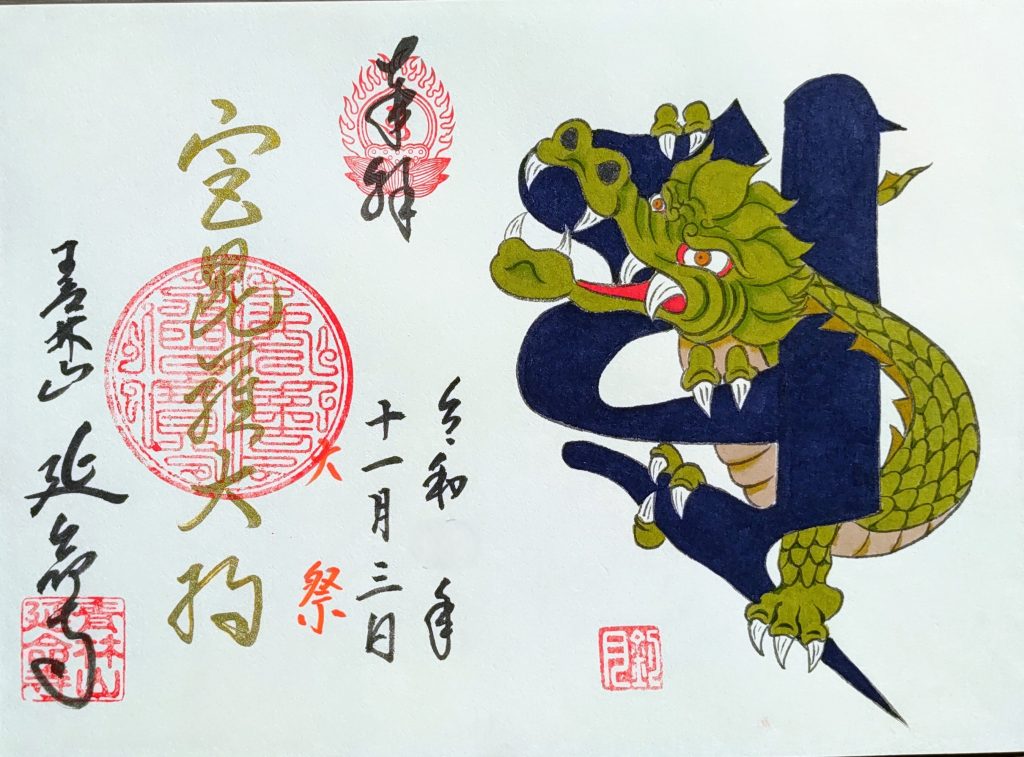 令和 年
十一月三日
奉拝
大祭
宮毘羅大将
青林山 延命寺
青林山
延命寺